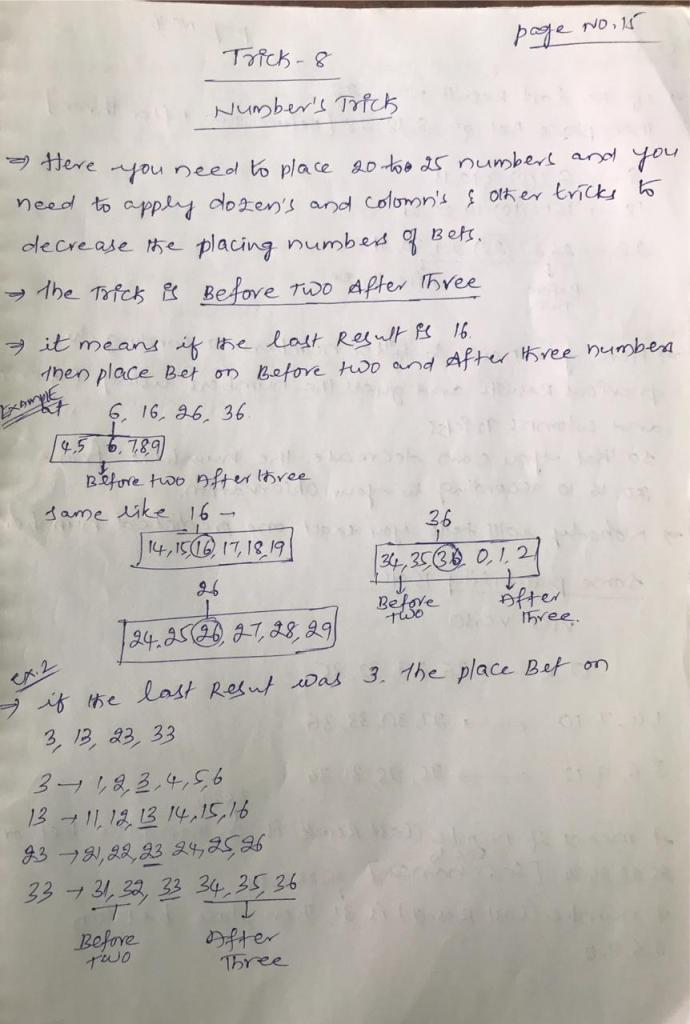 page NO. 15
Trick - 8
Number's Trick
⇒ Here you need to place 20 to 25 numbers and you
need to apply dozen's and colomn's & other tricks to
decrease the placing numbers of Bets.
→ The Trick is Before Two After Three
⇒ it means if the last Result is 16.
then place Bet on Before two and After three numbers
Example
of 6, 16, 26, 36.
4,5 6,7,8,9
Before two After three
same like 16 →
14,15,16,17,18,19
36
34,35,36, 0,1,2
Before two
After Three.
26
24.25 26, 27, 28, 29
ex.2
→ if the last Result was 3. the place Bet on
3, 13, 23, 33
3 → 1,2,3,4,5,6
13 → 11,12,13 14,15,16
23 → 21,22,23 24,25,26
33 → 31,32, 33 34,35,36
Before two
After Three